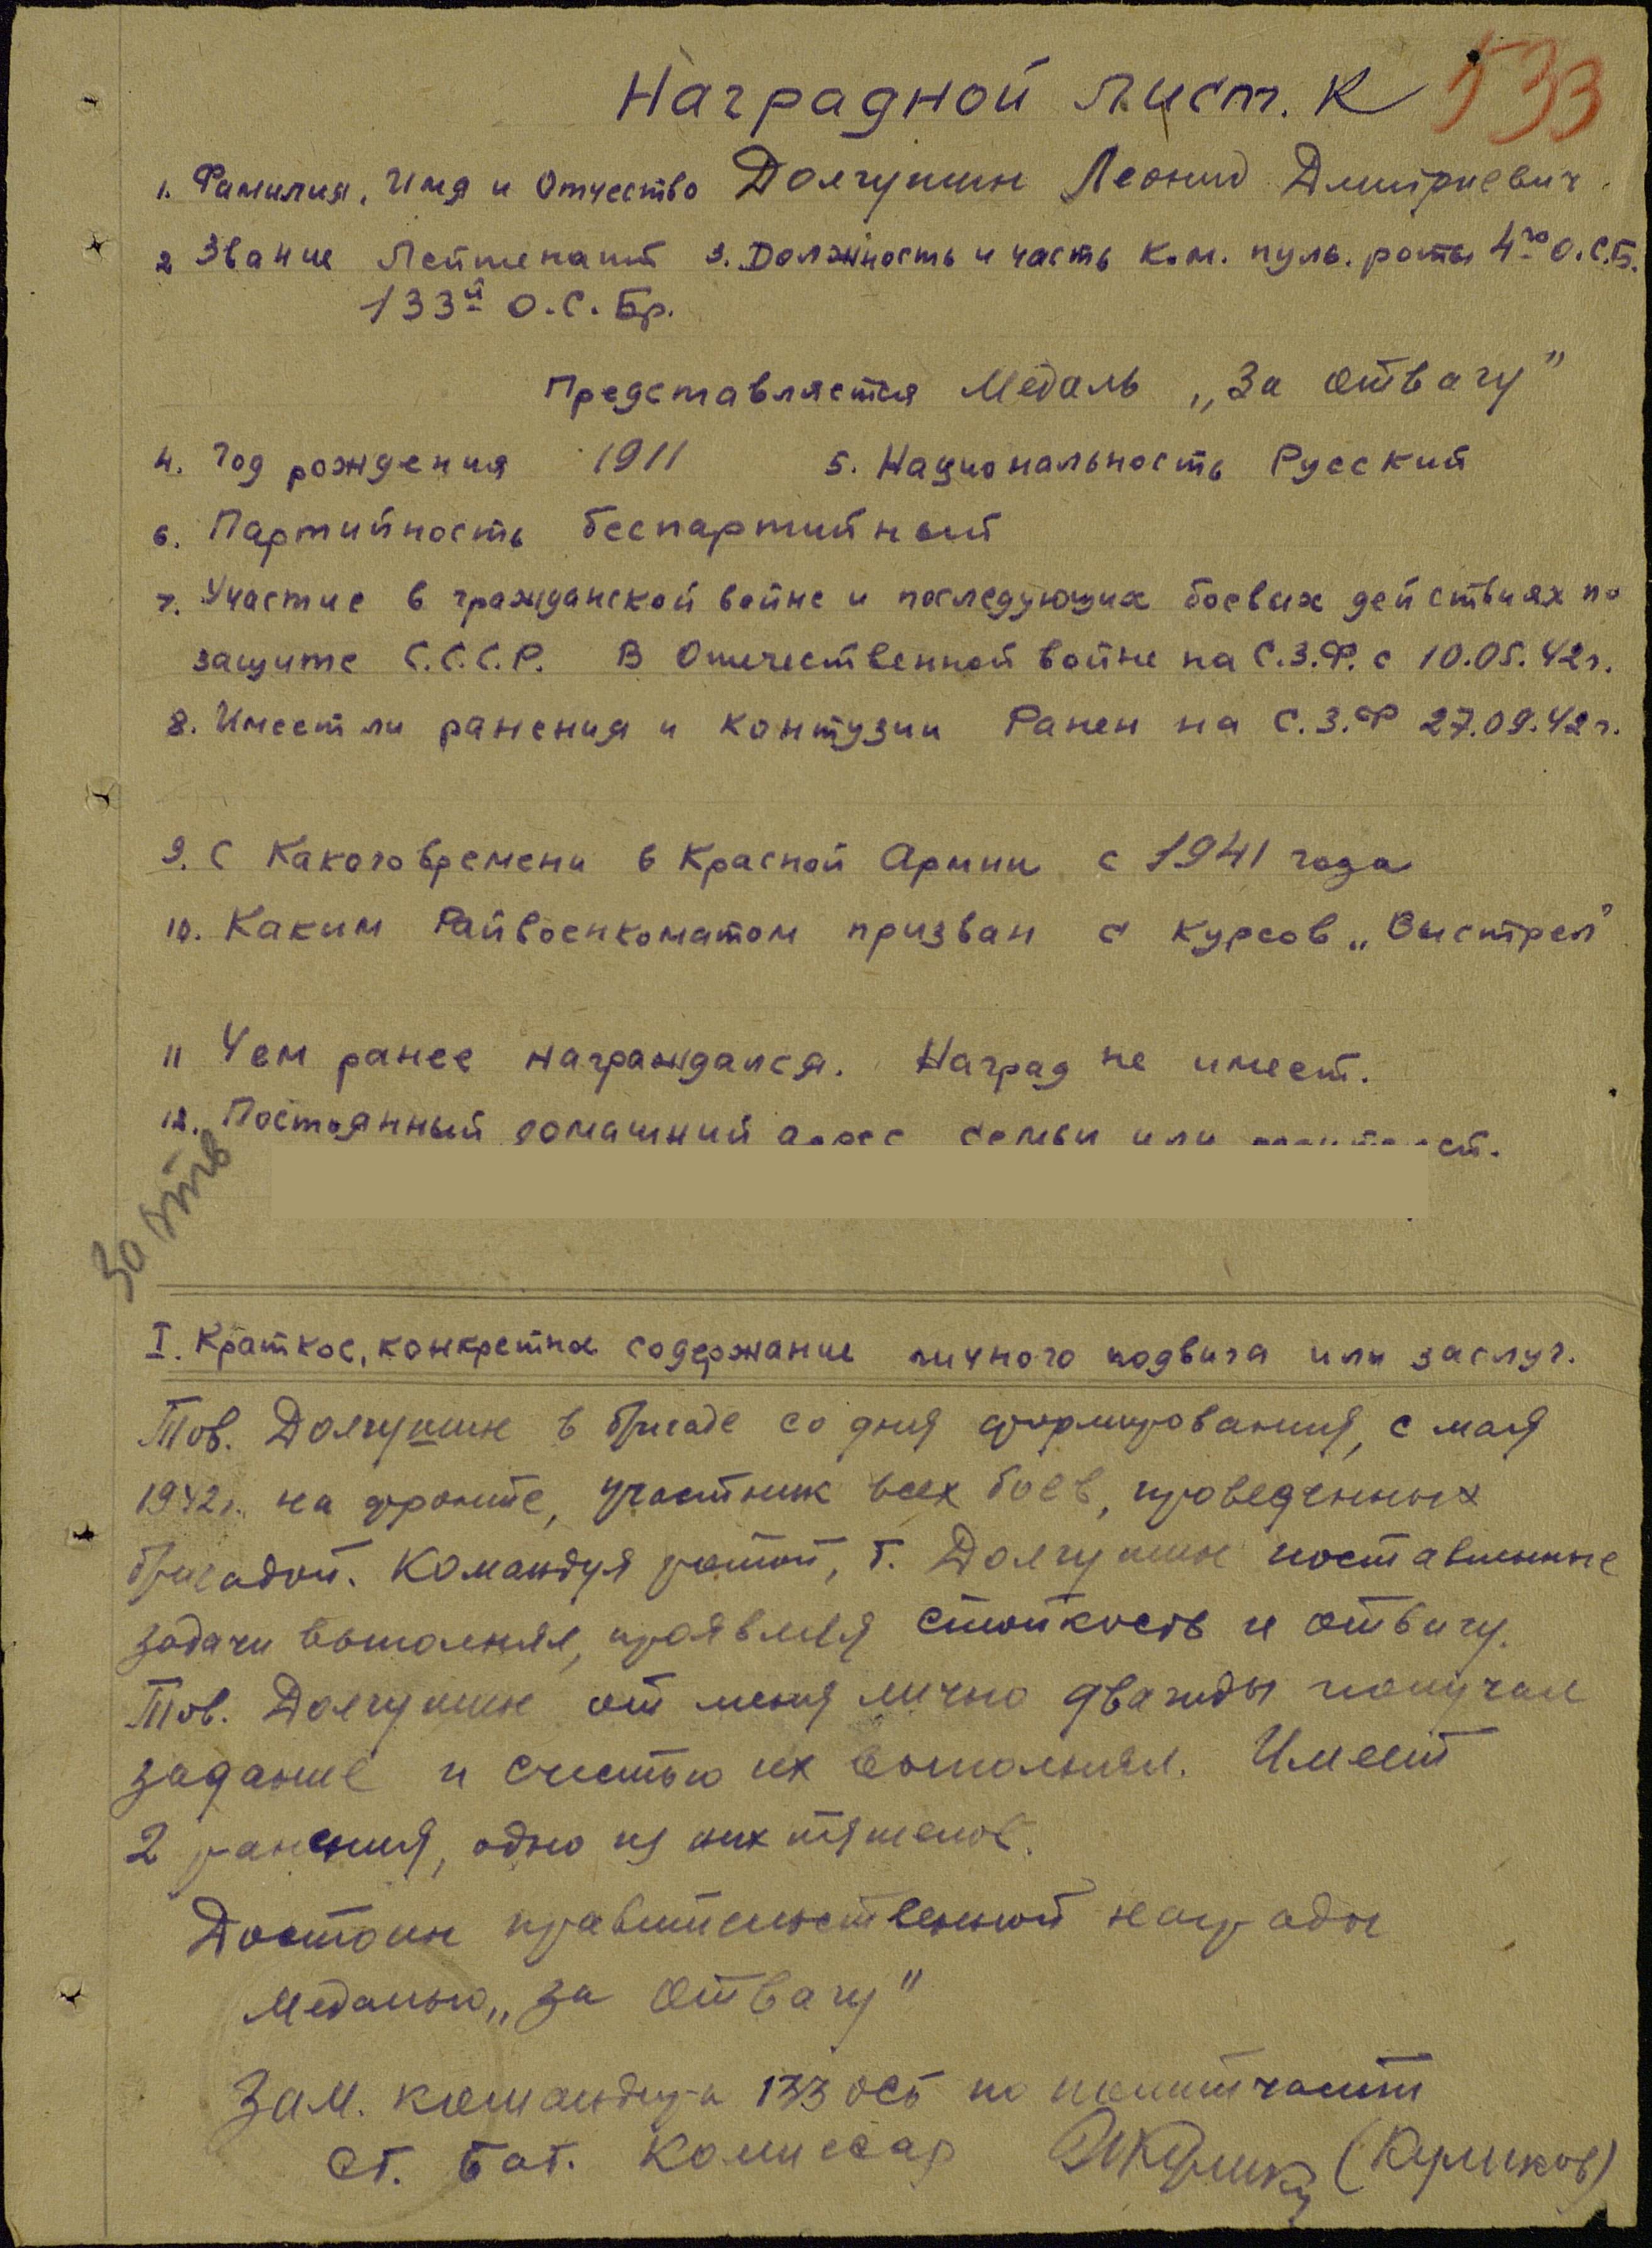 Наградной лист. К 533
1. Фамилия, Имя и Отчество Долгушин Леонид Дмитриевич.
2 Звание Лейтенант 3. Должность и часть Ком. пуль. роты 4го О.С.Б.
133й О.С.Бр.
Представляется Медаль „За отвагу"
4. Год рождения 1911 5. Национальность Русский
6. Партийность беспартийный
7. Участие в гражданской войне и последующих боевых действиях по
защите С.С.С.Р. В Отечественной войне на С.З.Ф. с 10.05.42г.
8. Имеет ли ранения и контузии Ранен на С.З.Ф 27.09.42г.
9. С Какого времени в Красной Армии с 1941 года
10. Каким Райвоенкоматом призван с курсов „Выстрел"
11 Чем ранее награждался. Наград не имеет.
12. Постоянный домашний адрес семьи или
За отв
I. Краткое, конкретное содержание личного подвига или заслуг.
Тов. Долгушин в бригаде со дня формирования, с мая
1942г. на фронте, участник всех боев, проведенных
бригадой. Командуя ротой, т. Долгушин поставленные
задачи выполнял, проявляя стойкость и отвагу.
Тов. Долгушин от меня лично дважды получал
задание и с честью их выполнял. Имеет
2 ранения, одно из них тяжелое.
Достоин правительственной награды
медалью „За Отвагу"
Зам. командира 133 осб по политчасти
Ст. бат. Комиссар